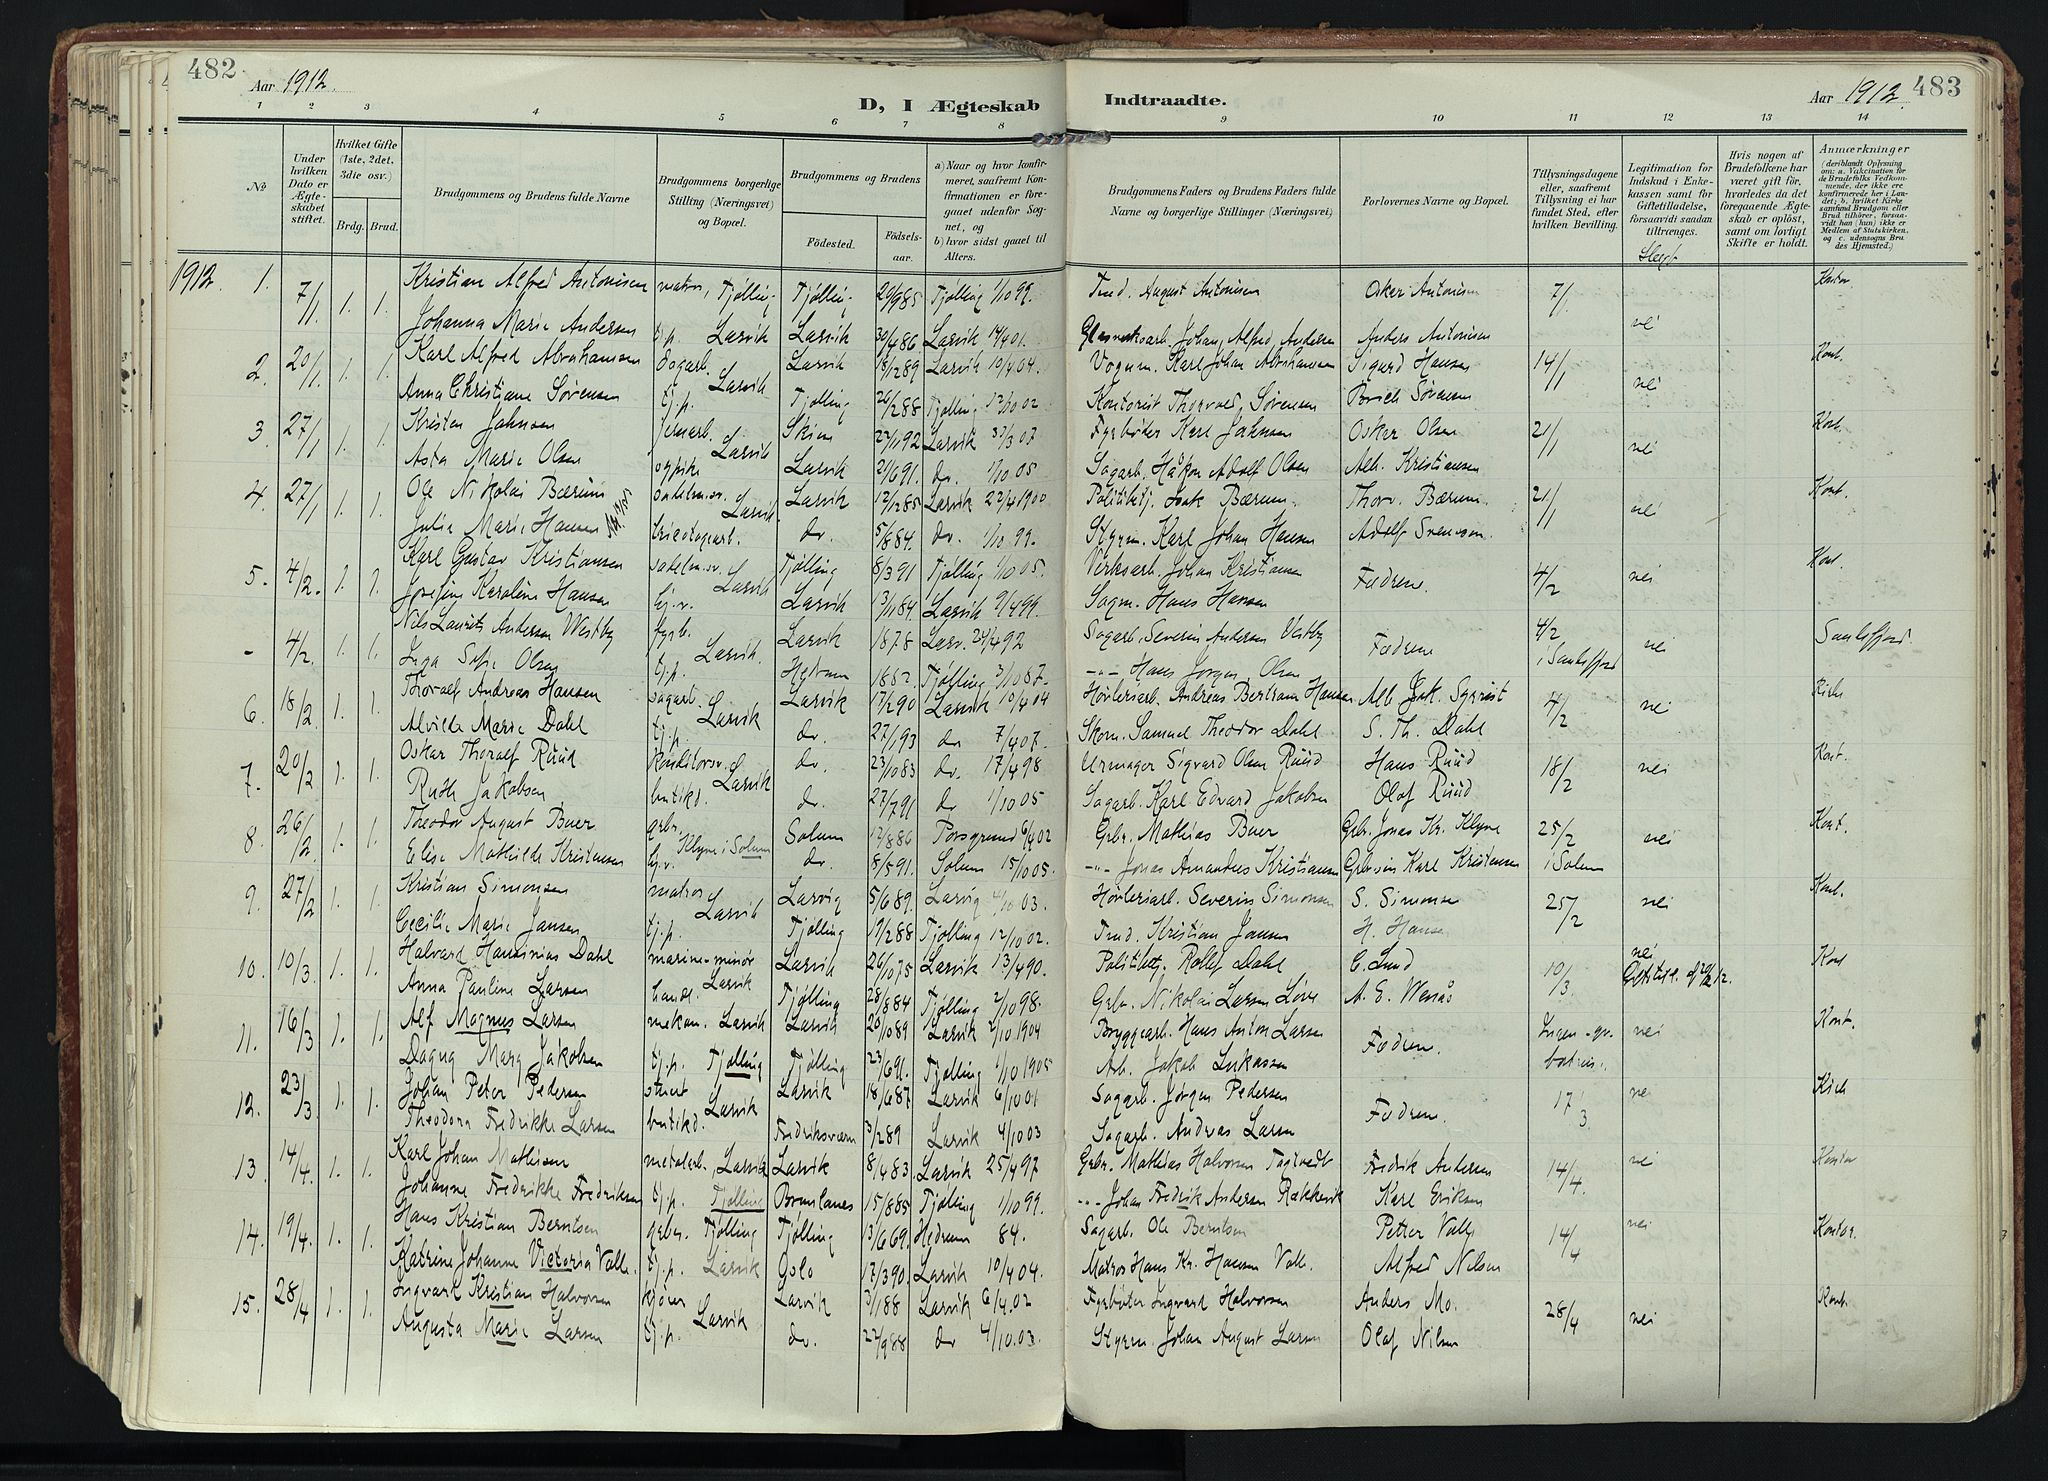 482
Aar 1912.
D, I Ægteskab Indtraadte.
Aar 1912. 483
1 2 3 4 5 6 7 8 9 10 11 12 13 14
No
Under hvilken Dato er Ægteskabet stiftet.
Hvilket Gifte (1ste, 2det, 3die osv.)
Brdg. Brud.
Brudgommens og Brudens fulde Navne
Brudgommens borgerlige Stilling (Næringsvei) og Bopæl.
Brudgommens og Brudens
Fødested. Fødselsaar.
a) Naar og hvor konfirmeret, saafremt Konfirmationen er foregaaet udenfor Sognet, og
b) hvor sidst gaaet til Alters.
Brudgommens Faders og Brudens Faders fulde Navne og borgerlige Stillinger (Næringsvei)
Forlovernes Navne og Bopæl.
Tillysningsdagene eller, saafremt Tillysning ei har fundet Sted, efter hvilken Bevilling.
Legitimation for Indskud i Enkekassen samt for Giftetilladelse, forsaavidt saadan tiltrænges.
Hvis nogen af Brudefolkene har været gift før, hvorledes da det foregaaende Ægteskab er opløst, samt om lovligt Skifte er holdt.
Anmærkninger (deriblandt Oplysning om: a. Vakcination for de Brudefolks Vedkommende, der ikke ere konfirmerede her i Landet; b. hvilket Kirkesamfund Brudgom eller Brud tilhører, forsaavidt han (hun) ikke er Medlem af Statskirken, og c. udensogns Brudes Hjemsted.)
1912. 1. 7/1 1. 1. Kristian Alfred Antonisen matros, Tjølling Tjølling 29/985 Tjølling 1/10 99. August Antonisen Oskar Antonisen 7/1 Kontor
Johanna Marie Andersen tj.p. Larvik Larvik 30/486 Larvik 14/4 01. Johan Alfred Andersen Anders Antonisen nei
2. 20/1 1. 1. Karl Alfred Abrahamsen Larvik Larvik 18/1289 Larvik 10/4 04. Vognm. Karl Johan Abrahamsen Sigard Hansen 14/1 nei Kont.
Anna Christiane Sørensen tj.p. Tjølling 20/288 Tjølling 12/10 02 Kontorist Thorvald Sørensen Sørensen
3. 27/1 1. 1. Kristen Johnsen jernarb. Larvik Skien 27/192 Larvik 07 Fyrbøter Karl Johnsen Oskar Olsen 21/1 nei Kont.
Asta Marie Olsen Larvik 21/691. do. 1/10 05 Sagarb. Håkon Adolf Olsen Alb. Kristiansen
4. 27/1 1. 1. Ole Nikolai Bærum Larvik Larvik 12/1285 Larvik 22/4 1900 Politibtj. Isak Bærum Thorv. Bærum 21/1 nei Kont.
Julie Marie Hansen do. 5/884. do. 1/10 99. Styrm. Karl Johan Hansen Adolf Svenson.
5. 4/2. 1. 1. Karl Gustav Kristiansen Larvik Tjølling 8/391 Tjølling 1/10 05. Verksarb. Johan Kristiansen Fædrene. 4/2 nei Kont.
Josefine Karoline Hansen Larvik 13/1184 Larvik 9/4 99. Sagm. Hans Hansen
- 4/2. 1. 1. Nils Laurits Andersen Westby fyrb. Larvik. Larvik 1878 Larv. 24/4 92 Sagarb. Severin Andersen Vestby Fædrene 4/2 i Sandefjord nei Sandefjord
Inga Sofie Olsen tj.p. Hedrum 1882 Tjølling Hans Jørgen Olsen
6. 18/2 1. 1. Thoralf Andreas Hansen sagarb. Larvik Larvik 17/290 Larvik 10/4 04 Høvleriarb. Andreas Bertram Hansen Alb. Jak. 4/2 nei Kirk.
Alvilde Marie Dahl tj.p. do. 27/193 do 7/4 07. Skom. Samuel Theodor Dahl S. Th. Dahl
7. 20/2 1. 1. Oskar Thoralf Ruud konditorsv. Larvik do. 23/1083 do. 17/4 98 Urmager Sigvard Olsen Ruud Hans Ruud 18/2 nei Kont.
Ruth Jakobsen butikd. do. 27/791 do 1/10 05 Sagarb. Karl Edvard Jakobsen Olaf Ruud
8. 26/2 1. 1. Theodor August Buer grbr. Klyve i Solum Solum 17/886 Porsgrund 6/4 02 Grbr. Mathias Buer Grbr. Jonas Kr. Klyve 25/2 i Solum nei Kont.
Elise Mathilde Kristensen do. 8/591. Solum 15/10 05. Jonas Amandus Kristiansen Karl Kristensen
9. 27/2 1. 1. Kristian Simonsen matros Larvik Larvig 5/689. Larvig 4/10 03. Høvleriarb. Severin Simonsen S. Simonsen 25/2 nei Kont.
Cecilie Marie Jansen tj.p. Tjølling 19/288 Tjølling 12/10 02. Kristian Jansen H. Hansen
10. 10/3 1. 1. Halvard Hansinius Dahl marine-minør Larvik Larvik 26/1075 Larvik 13/4 90. Politibtj. Rolf Dahl C. Lund 10/3 nei Kont
Anna Pauline Larsen Tjølling 28/884 Tjølling 2/10 98. Grbr. Nikolai Larsen Løve A. E. Wersås
11. 16/3 1. 1. Alf Magnus Larsen mekan. Larvik Larvik 20/1089 Larvik 2/10 1904 Bryggearb. Hans Anton Larsen Fædrene. nei Kont.
Dagny Marg. Jakobsen tj.p. Tjølling Tjølling 23/691. Tjølling 1/10 1905 Arb. Jakob Lukassen
12. 23/3 1. 1. Johan Peter Pedersen Larvik Larvik 18/687 Larvik 6/10 01 Sagarb. Jørgen Pedersen Fædrene. 17/3 nei Kirk
Theodora Fredrikke Larsen butikd. Fredriksværn 3/289 Larvik 4/10 03 Sagarb. Andreas Larsen
13. 14/4. 1. 1. Karl Johan Mathisen metalarb. Larvik Larvik 8/483. Larvik 25/4 97 Grbr. Mathias Halvorsen Tagtvedt Fredrik Andersen 14/4. nei Kontor
Johanne Fredrikke Fredriksen tj.p. Tjølling Brunlanes 15/885 Tjølling 1/10 99. Johan Fredrik Andersen Rækkevik Karl Eriksen
14. 19/4. 1. 1. Hans Kristian Berntsen grbr. Tjølling Tjølling 13/669. Hedrum 84. Sagarb. Ole Berntsen Petter Valle 14/4 nei Kontor.
Katrine Johanne Victoria Valle. tj.p. Larvik Oslo 17/390. Larvik 10/4 04. Matros Hans Kr. Hansen Valle. Alfred Nilsen
15. 28/4 1. 1. Ingvard Kristian Halvorsen kjører Larvik Larvik 3/188 Larvik 6/4.02 Fyrbøter Ingvard Halvorsen Anders Mo. 28/4 nei Kont.
Augusta Marie Larsen tj.p. do. 22/988 do 4/10.03. Styrm. Johan August Larsen Olaf Nilsen